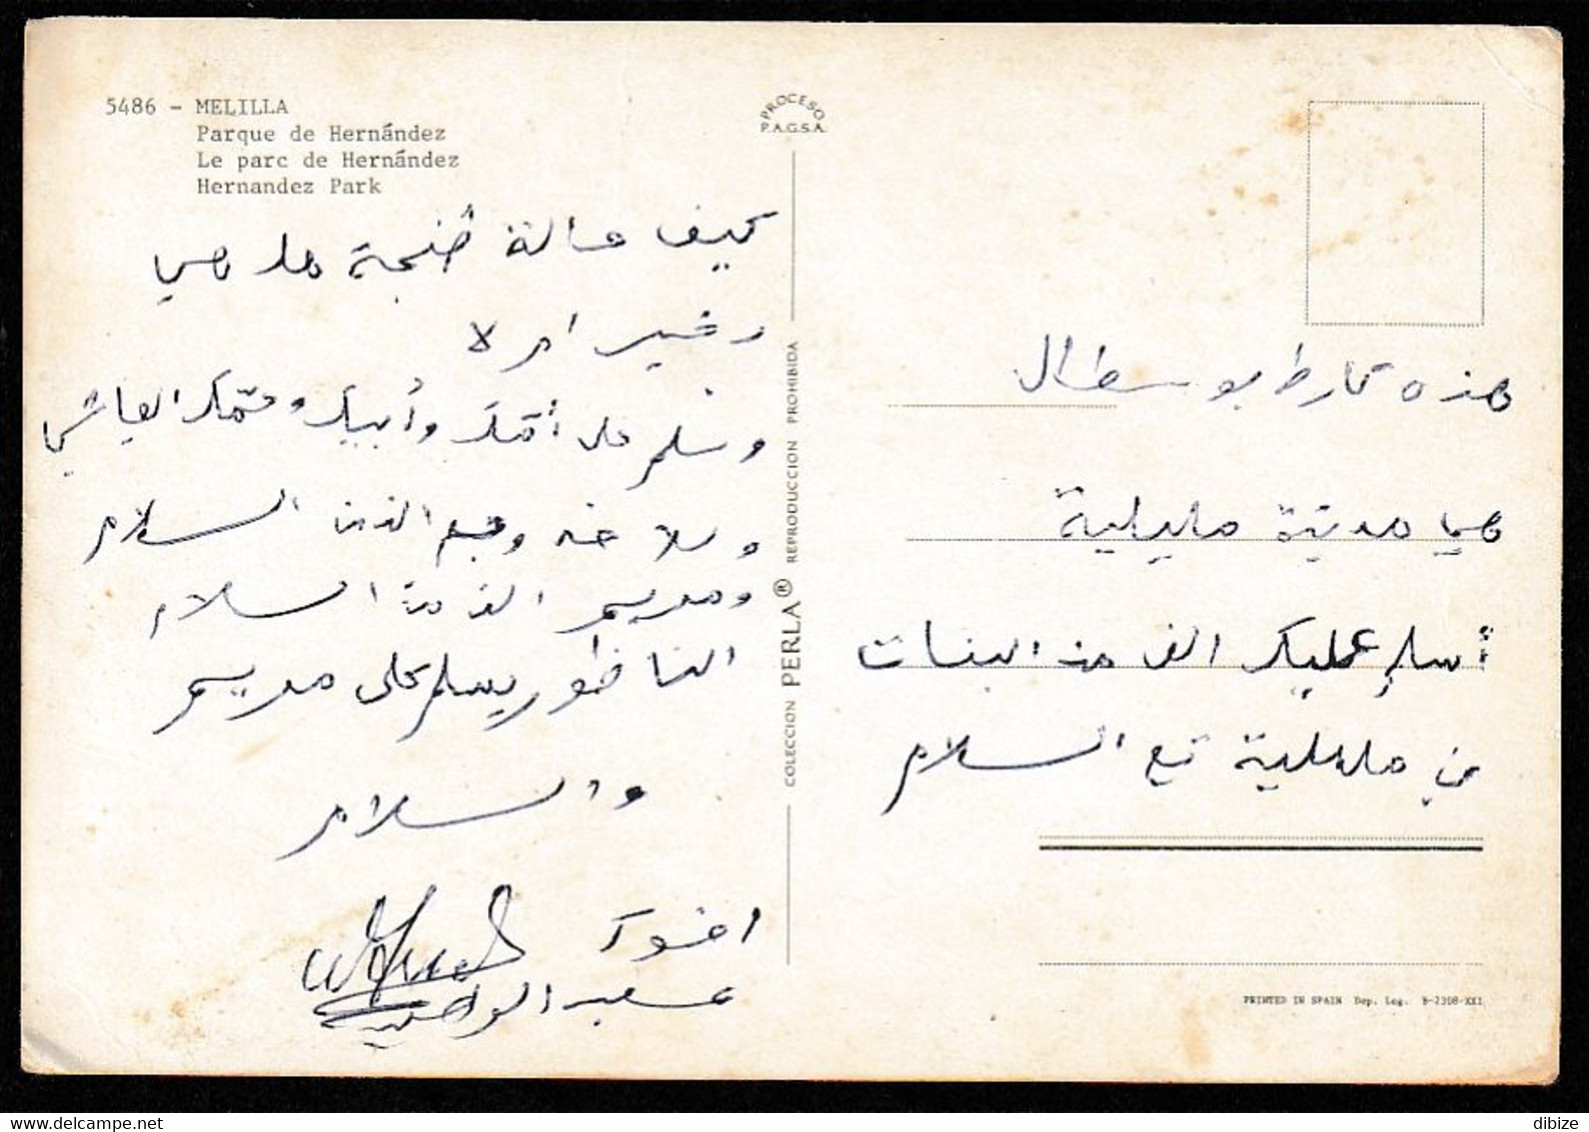 5486 - MELILLA
Parque de Hernández
Le parc de Hernández
Hernandez Park
PROCESO
P.A.G.S.A.
كيف حالة طنجة هل هي
بخير ام لا
وسلم على أمك وأبيك وعمك العياشي
السلام
ومريم الف من السلام
الناظور يسلم على مريم
والسلام
اخوك
عبد الواحد
COLECCION PERLA® REPRODUCCION PROHIBIDA
هذه كارط بوسطال
هي مدينة مليلية
أسلم عليك الف من البنات
من مليلية مع السلام
PRINTED IN SPAIN Dep. Leg. B-2308-XXI
dibize